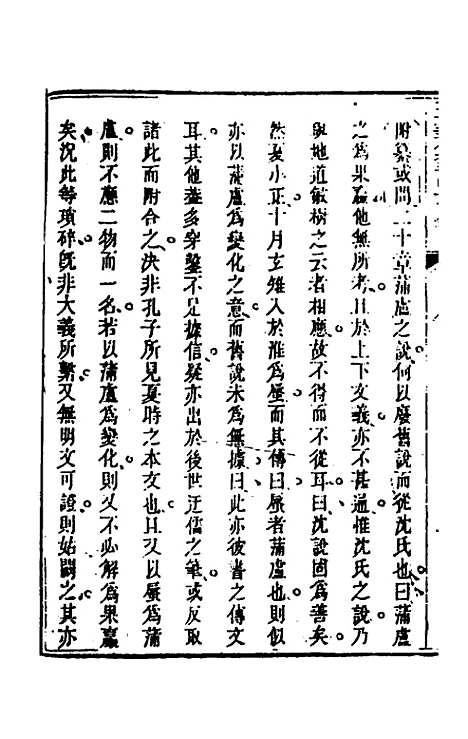 附纂或問二十章蒲盧之說何以廢舊說而從沈氏也曰蒲盧
之為果蠃他無所考且於上下文義亦不甚通惟沈氏之說乃
與地道敏樹之云者相應故不得而不從耳曰沈說固為善矣
然夏小正十月玄雉入於淮為蜃而其傳曰蜃者蒲盧也則似
亦以蒲盧為變化之意而舊說未為無據曰此亦彼書之傳文
耳其他蓋多穿鑿不足據信疑亦出於後世迂儒之筆或反取
諸此而附合之決非孔子所見夏時之本文也且又以蜃為蒲
盧則不應二物而一名若以蒲盧為變化則又不必解為果蠃
矣況此等瑣碎既非大義所繫又無明文可證則姑闕之其亦